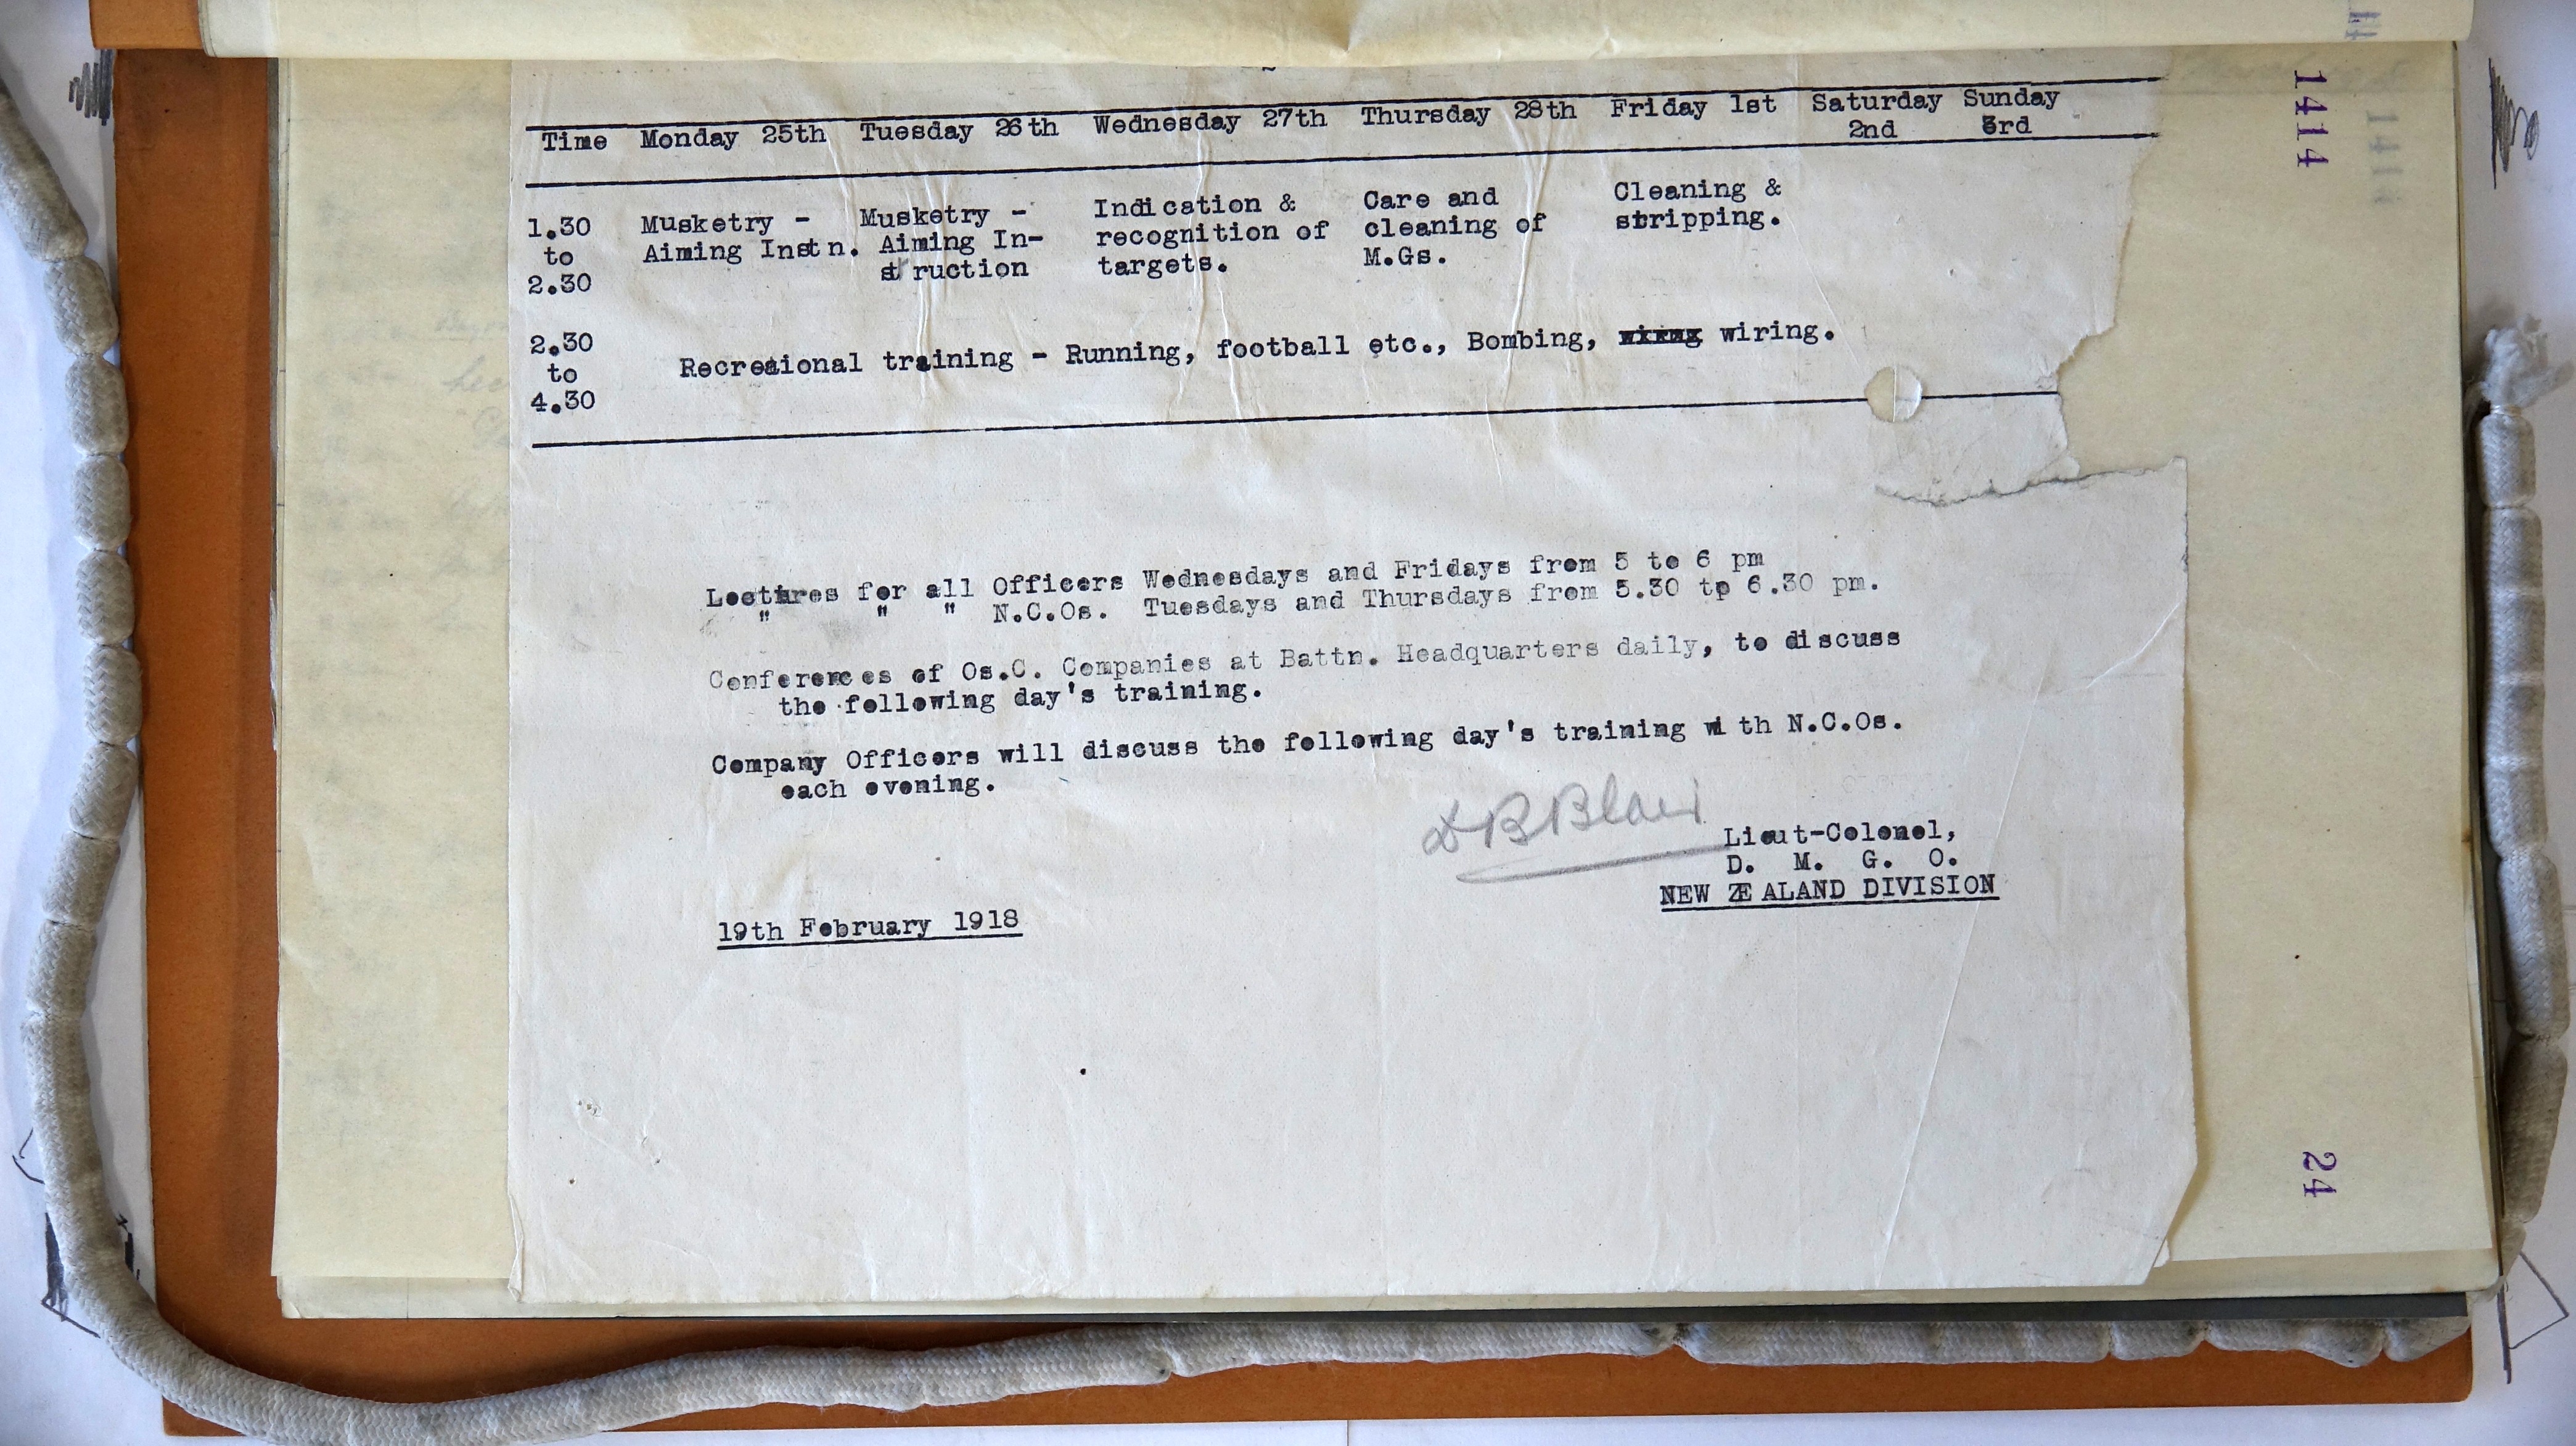 Time Monday 25th Tuesday 26th Wednesday 27th Thursday 28th Friday 1st Saturday 2nd Sunday 3rd
1.30 to 2.30
Musketry -
Aiming Instn.
Musketry -
Aiming In-
struction
Indication &
recognition of
targets.
Care and
cleaning of
M.Gs.
Cleaning &
stripping.
2.30 to 4.30
Recreaional training - Running, football etc., Bombing, wiring.
Lectures for all Officers Wednesdays and Fridays from 5 to 6 pm
" " " N.C.Os. Tuesdays and Thursdays from 5.30 to 6.30 pm.
Conferences of Os.C. Companies at Battn. Headquarters daily, to discuss
the following day's training.
Company Officers will discuss the following day's training with N.C.Os.
each evening.
D B Blair
Lieut-Colonel,
D. M. G. O.
NEW ZEALAND DIVISION
19th February 1918
1414
24